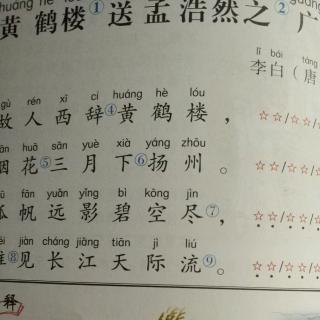 黄鹤楼①送孟浩然之②广
lǐ bái táng
李白（唐
gù rén xī cí huáng hè lóu
故人西辞④黄鹤楼，☆☆/☆☆/☆
huā sān yuè xià yáng zhōu
烟花⑤三月下⑥扬州。☆☆/☆☆/☆
fān yuǎn yǐng bì kōng jìn
孤帆远影碧空尽⑦，☆☆/☆☆/☆
jiàn cháng jiāng tiān jì liú
唯⑧见长江天际流⑨。☆☆/☆☆/☆
释